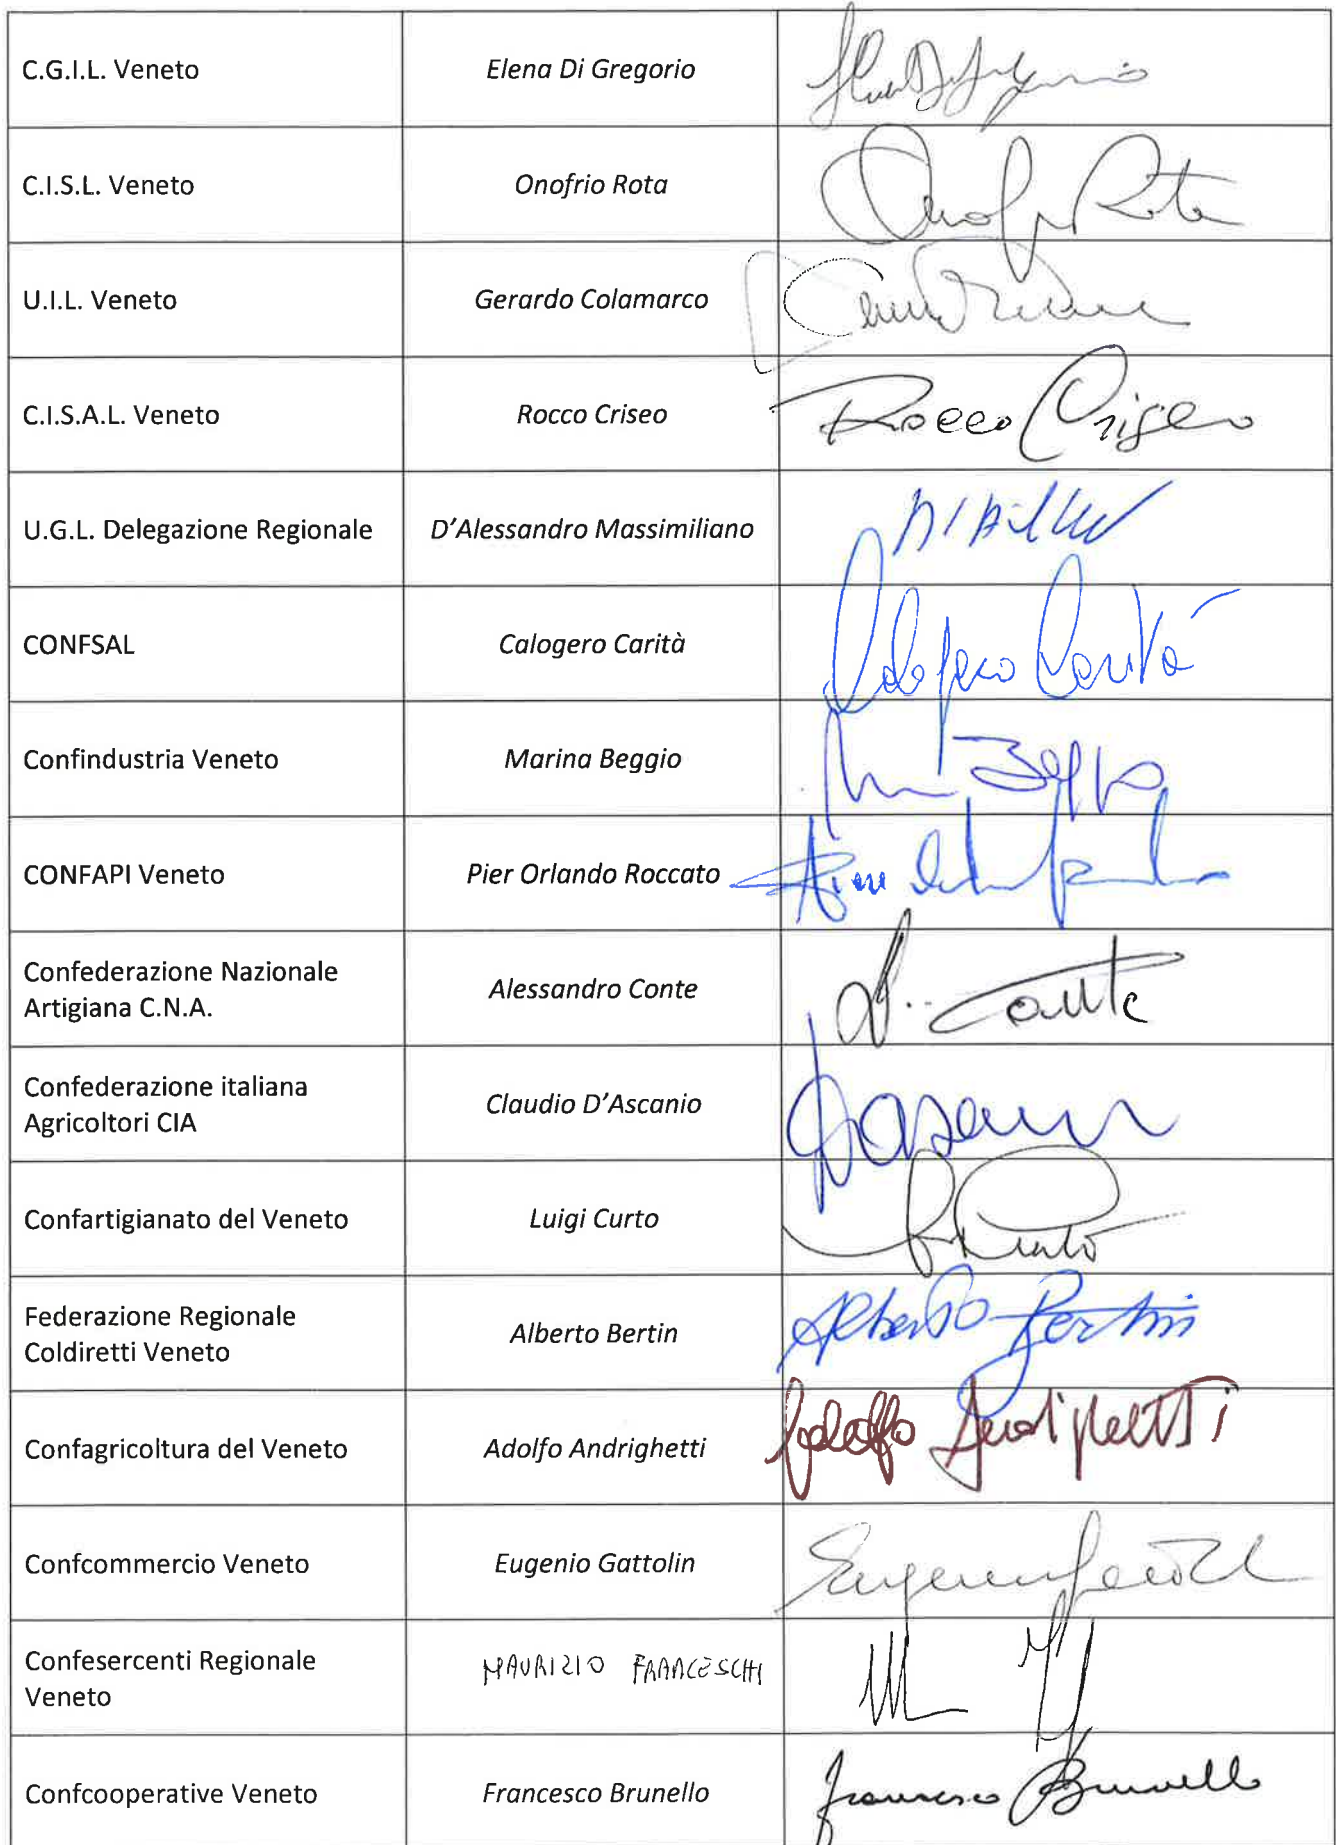 C.G.I.L. Veneto
Elena Di Gregorio
C.I.S.L. Veneto
Onofrio Rota
Onofrio Rota
U.I.L. Veneto
Gerardo Colamarco
C.I.S.A.L. Veneto
Rocco Criseo
Rocco Criseo
U.G.L. Delegazione Regionale
D'Alessandro Massimiliano
CONFSAL
Calogero Carità
Calogero Carità
Confindustria Veneto
Marina Beggio
CONFAPI Veneto
Pier Orlando Roccato
Confederazione Nazionale
Artigiana C.N.A.
Alessandro Conte
A. Conte
Confederazione italiana
Agricoltori CIA
Claudio D'Ascanio
Confartigianato del Veneto
Luigi Curto
Federazione Regionale
Coldiretti Veneto
Alberto Bertin
Alberto Bertin
Confagricoltura del Veneto
Adolfo Andrighetti
Adolfo Andrighetti
Confcommercio Veneto
Eugenio Gattolin
Confesercenti Regionale
Veneto
MAURIZIO FRANCESCHI
Confcooperative Veneto
Francesco Brunello
Francesco Brunello